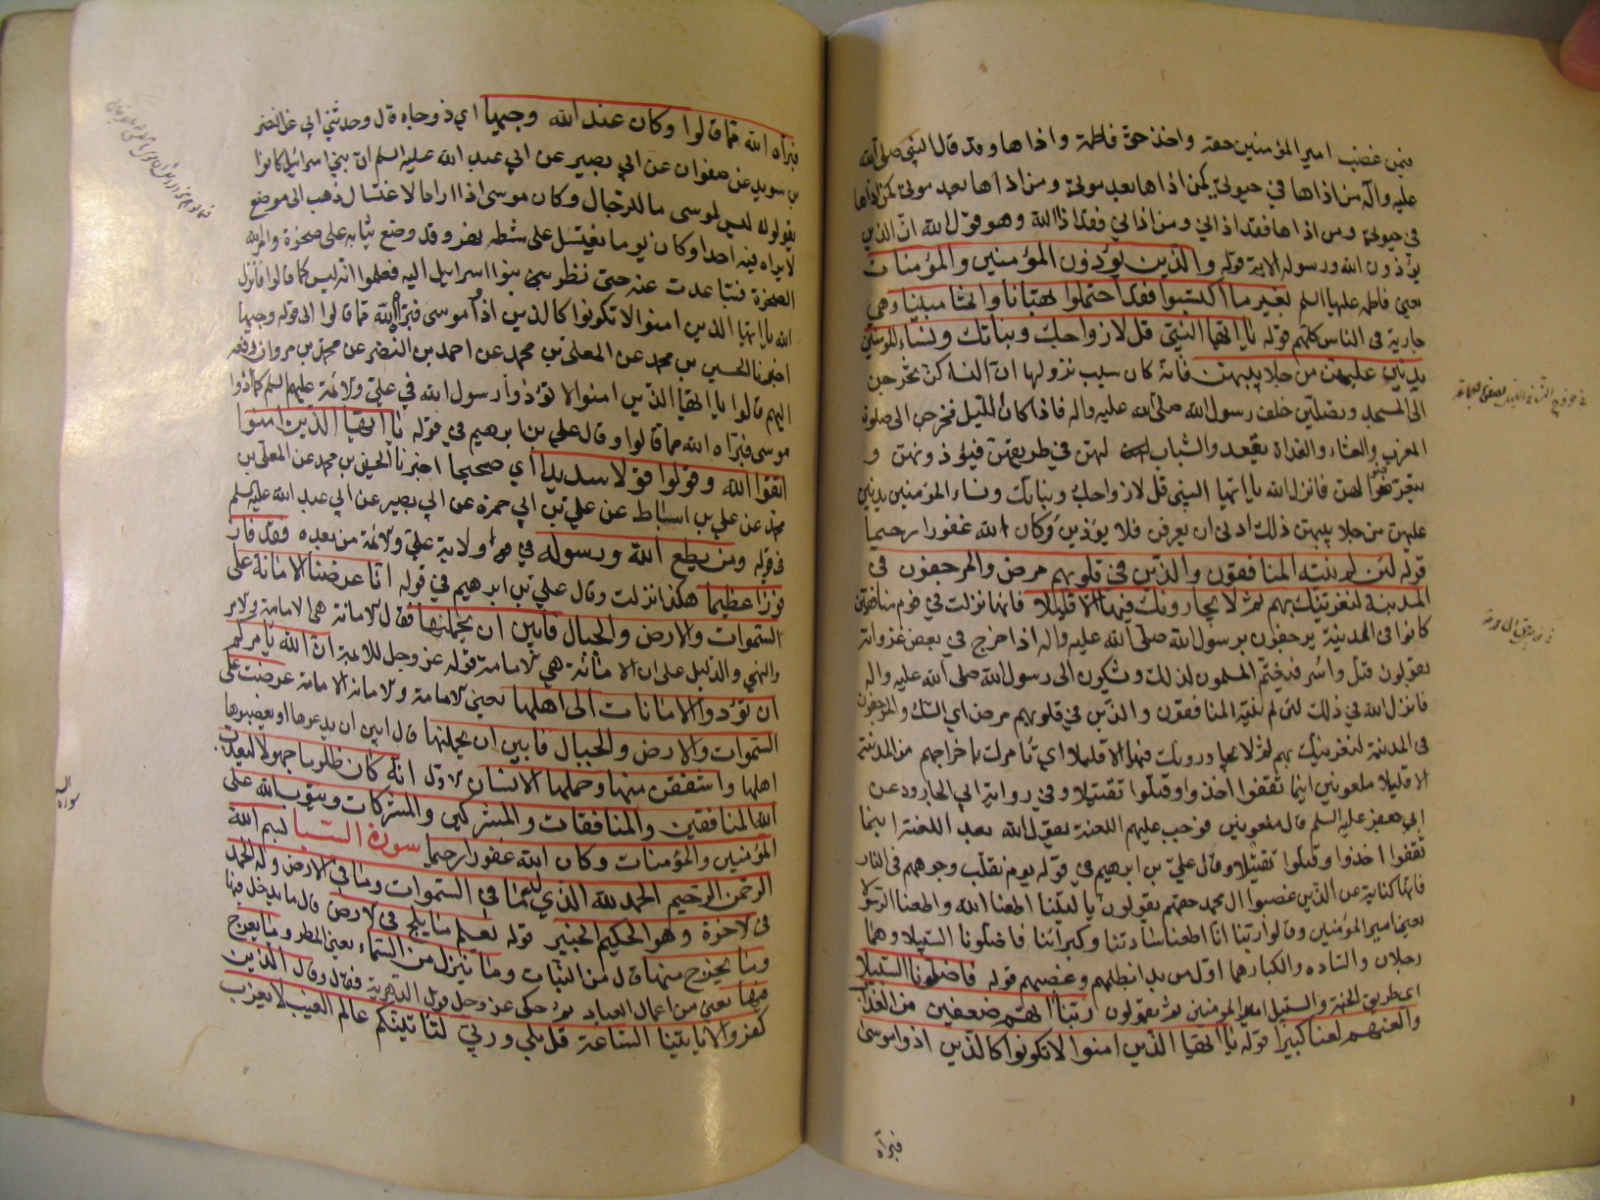 فيمن غصب امير المؤمنين حقه واخذ حق فاطمة واذاها وقد قال النبي صلى الله
عليه وآله من اذاها في حيوتي كمن اذاها بعد موتي ومن اذاها بعد موتي كمن اذاها
في حيوتي ومن اذاها فقد اذاني ومن اذاني فقد اذا الله وهو قول الله ان الذين
يؤذون الله ورسوله الاية قوله والذين يؤذون المؤمنين والمؤمنات
يعني فاطمة عليها السلم بغير ما اكتسبوا فقد احتملوا بهتانا واثما مبينا وهي
جارية في الناس كلهم قوله يا ايها النبي قل لازواجك وبناتك ونساء المؤمنين
يدنين عليهن من جلابيبهن فانه كان سبب نزولها ان النساء كن يخرجن
الى المسجد ويصلين خلف رسول الله صلى الله عليه واله فاذا كان الليل فخرجن الى صلوة
المغرب والعشاء والغداة يقعد والشباب لهن في طريقهن فيؤذونهن و
يتعرضوا لهن فانزل الله يا ايها النبي قل لازواجك وبناتك ونساء المؤمنين يدنين
عليهن من جلابيبهن ذلك ادنى ان يعرفن فلا يؤذين وكان الله غفورا رحيما
قوله لئن لم ينته المنافقون والذين في قلوبهم مرض والمرجفون في
المدينة لنغرينك بهم ثم لا يجاورونك فيها الا قليلا فانها نزلت في قوم منافقين
كانوا في المدينة يرجفون برسول الله صلى الله عليه واله اذا خرج في بعض غزواته
يقولون قتل واسر فيغتم المسلمون لذلك ويشكون الى رسول الله صلى الله عليه واله
فانزل الله في ذلك لئن لم ينته المنافقون والذين في قلوبهم مرض اي الشك والمرجفون
في المدينة لنغرينك بهم ثم لا يجاورونك فيها الا قليلا اي نامرك باخراجهم من المدينة
الا قليلا ملعونين اينما ثقفوا اخذوا وقتلوا تقتيلا وفي رواية ابي الجارود عن
ابي جعفر عليه السلم قال ملعونين فوجب عليهم اللعنة يقول الله بعد اللعنة اينما
ثقفوا اخذوا وقتلوا تقتيلا وقال علي بن ابرهيم في قوله يوم تقلب وجوههم في النار
فانها كناية عن الذين غصبوا ال محمد حقهم يقولون يا ليتنا اطعنا الله واطعنا الرسولا
يعني امير المؤمنين وقالوا ربنا انا اطعنا سادتنا وكبرائنا فاضلونا السبيلا وهما
رجلان والساده والكبار هما اول من بدا بظلمهم وغصبهم قوله فاضلونا السبيلا
اي طريق الجنة والسبيل امير المؤمنين ثم يقولون ربنا اتهم ضعفين من العذاب
والعنهم لعنا كبيرا قوله يا ايها الذين امنوا لا تكونوا كالذين اذوا موسى
فبراه
فبراه الله مما قالوا وكان عند الله وجيها اي ذو جاه قال وحدثني ابي عن النضر
بن سويد عن صفوان عن ابي بصير عن ابي عبد الله عليه السلم ان بني اسرائيل كانوا
يقولوله ليس لموسى ما للرجال وكان موسى اذا اراد الاغتسال ذهب الى موضع
لا يراه فيه احد وكان يوما يغتسل على شط نهر وقد وضع ثيابه على صخرة وامر الله
الصخرة فتباعدت عنه حتى نظر بنوا اسرائيل اليه فعلموا انه ليس كما قالوا فانزل
الله يا ايها الذين امنوا لا تكونوا كالذين اذوا موسى فبراه الله مما قالوا الى قوله وجيها
اخبرنا الحسين بن محمد عن المعلى بن محمد عن احمد بن النضر عن محمد بن مروان رفعه
اليهم قالوا يا ايها الذين امنوا لا تؤذوا رسول الله في علي والائمة عليهم السلم كما اذوا
موسى فبراه الله مما قالوا وقال علي بن ابرهيم في قوله يا ايها الذين امنوا
اتقوا الله وقولوا قولا سديدا اي صحيحا اخبرنا الحسين بن محمد عن المعلى بن
محمد عن علي بن اسباط عن علي بن ابي حمزة عن ابي بصير عن ابي عبد الله عليه السلم
في قوله ومن يطع الله ورسوله في ولاية علي والائمة من بعده فقد فاز
فوزا عظيما هكذا نزلت وقال علي بن ابرهيم في قوله انا عرضنا الامانة على
السموات والارض والجبال فابين ان يحملنها فقال الامانة هي الامامة والامر
والنهي والدليل على ان الامانة هي الامامة قوله عز وجل للائمة ان الله يامركم
ان تؤدوا الامانات الى اهلها يعني الامامة والامانة الامامة عرضت على
السموات والارض والجبال فابين ان يحملنها قال ابين ان يدعوها او يغصبوها
اهلها واشفقن منها وحملها الانسان الاول انه كان ظلوما جهولا ليعذب
الله المنافقين والمنافقات والمشركين والمشركات ويتوب الله على
المؤمنين والمؤمنات وكان الله غفورا رحيما سورة السبا بسم الله
الرحمن الرحيم الحمد لله الذي له ما في السموات وما في الارض وله الحمد
في الاخرة وهو الحكيم الخبير قوله يعلم ما يلج في الارض قال ما يدخل فيها
وما يخرج منها قال من النبات وما ينزل من السماء يعني المطر وما يعرج
فيها يعني من اعمال العباد ثم حكى عز وجل قول الدهرية فقال وقال الذين
كفروا لا تاتينا الساعة قل بلى وربي لتاتينكم عالم الغيب لا يعزب
سورة